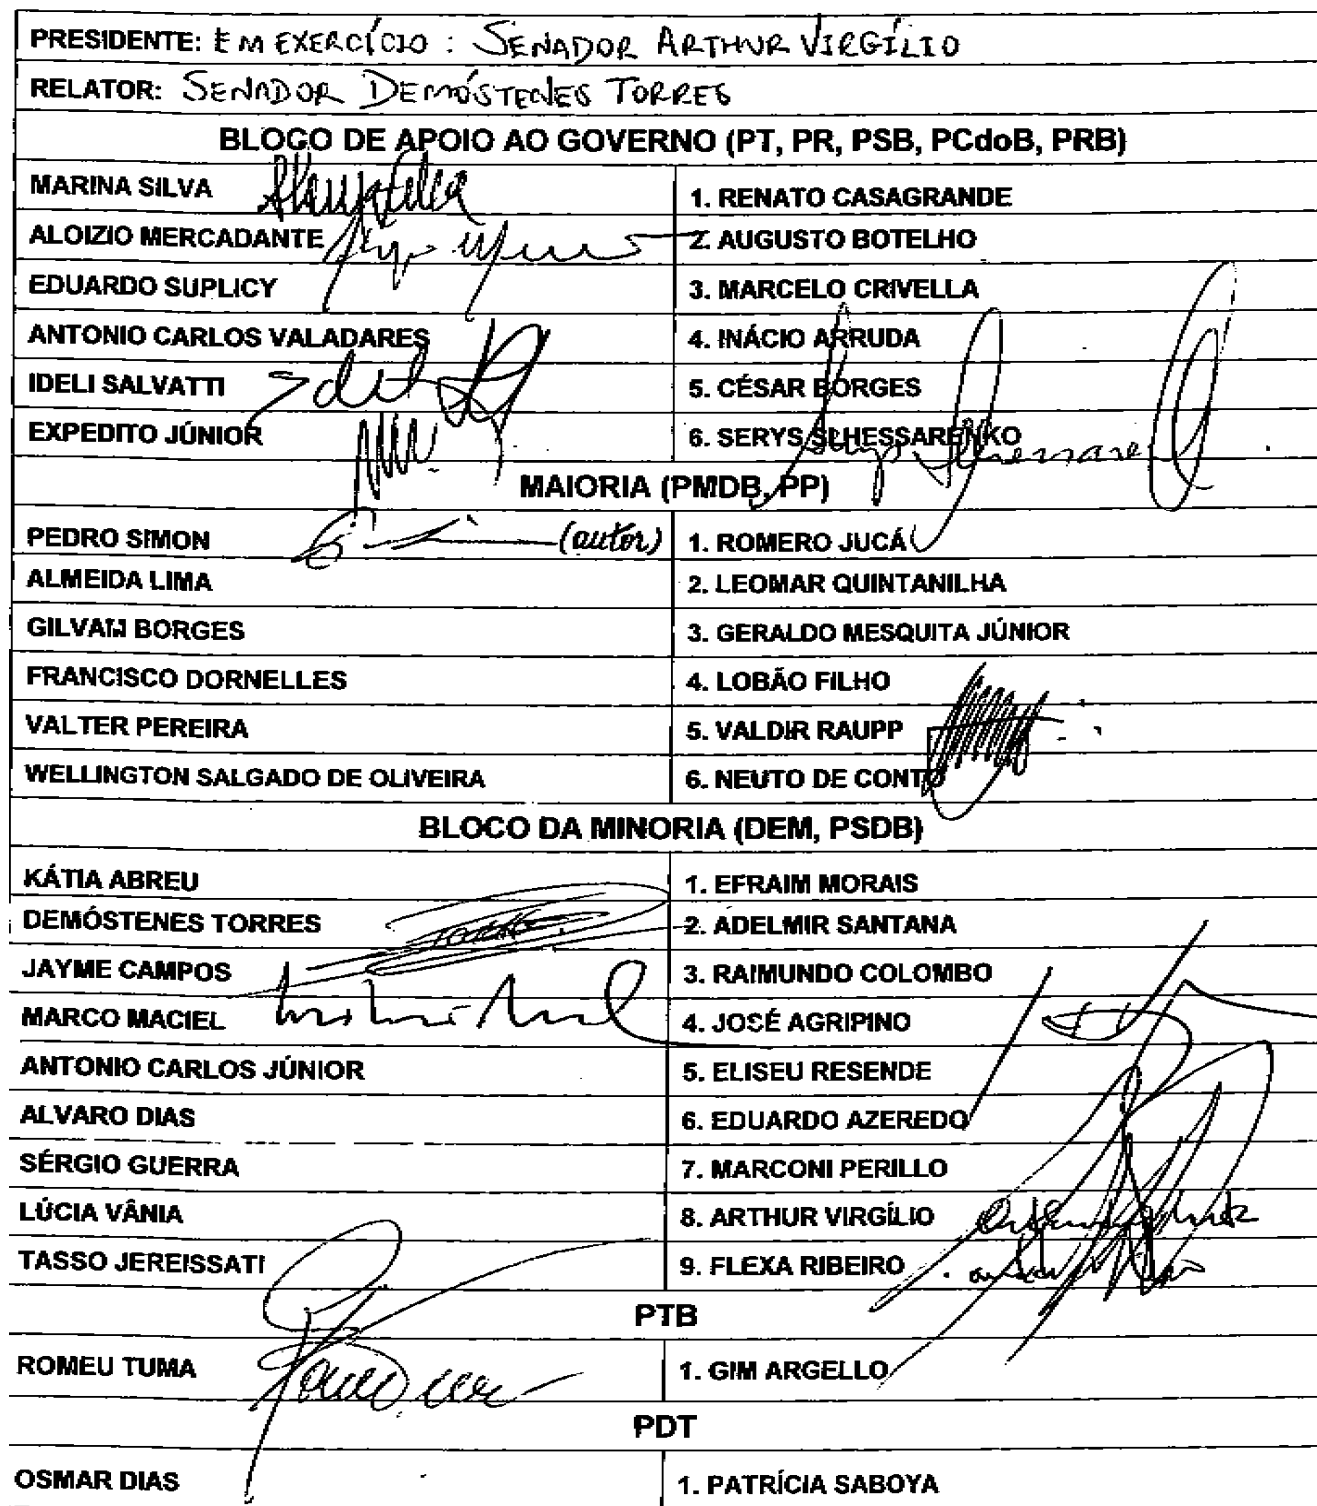 PRESIDENTE: EM EXERCÍCIO : SENADOR ARTHUR VIRGÍLIO
RELATOR: SENADOR DEMÓSTENES TORRES
BLOCO DE APOIO AO GOVERNO (PT, PR, PSB, PCdoB, PRB)
MARINA SILVA 1. RENATO CASAGRANDE
ALOIZIO MERCADANTE 2. AUGUSTO BOTELHO
EDUARDO SUPLICY 3. MARCELO CRIVELLA
ANTONIO CARLOS VALADARES 4. INÁCIO ARRUDA
IDELI SALVATTI 5. CÉSAR BORGES
EXPEDITO JÚNIOR 6. SERYS SLHESSARENKO
MAIORIA (PMDB, PP)
PEDRO SIMON (autor) 1. ROMERO JUCÁ
ALMEIDA LIMA 2. LEOMAR QUINTANILHA
GILVAM BORGES 3. GERALDO MESQUITA JÚNIOR
FRANCISCO DORNELLES 4. LOBÃO FILHO
VALTER PEREIRA 5. VALDIR RAUPP
WELLINGTON SALGADO DE OLIVEIRA 6. NEUTO DE CONTO
BLOCO DA MINORIA (DEM, PSDB)
KÁTIA ABREU 1. EFRAIM MORAIS
DEMÓSTENES TORRES 2. ADELMIR SANTANA
JAYME CAMPOS 3. RAIMUNDO COLOMBO
MARCO MACIEL 4. JOSÉ AGRIPINO
ANTONIO CARLOS JÚNIOR 5. ELISEU RESENDE
ALVARO DIAS 6. EDUARDO AZEREDO
SÉRGIO GUERRA 7. MARCONI PERILLO
LÚCIA VÂNIA 8. ARTHUR VIRGÍLIO
TASSO JEREISSATI 9. FLEXA RIBEIRO
PTB
ROMEU TUMA 1. GIM ARGELLO
PDT
OSMAR DIAS 1. PATRÍCIA SABOYA